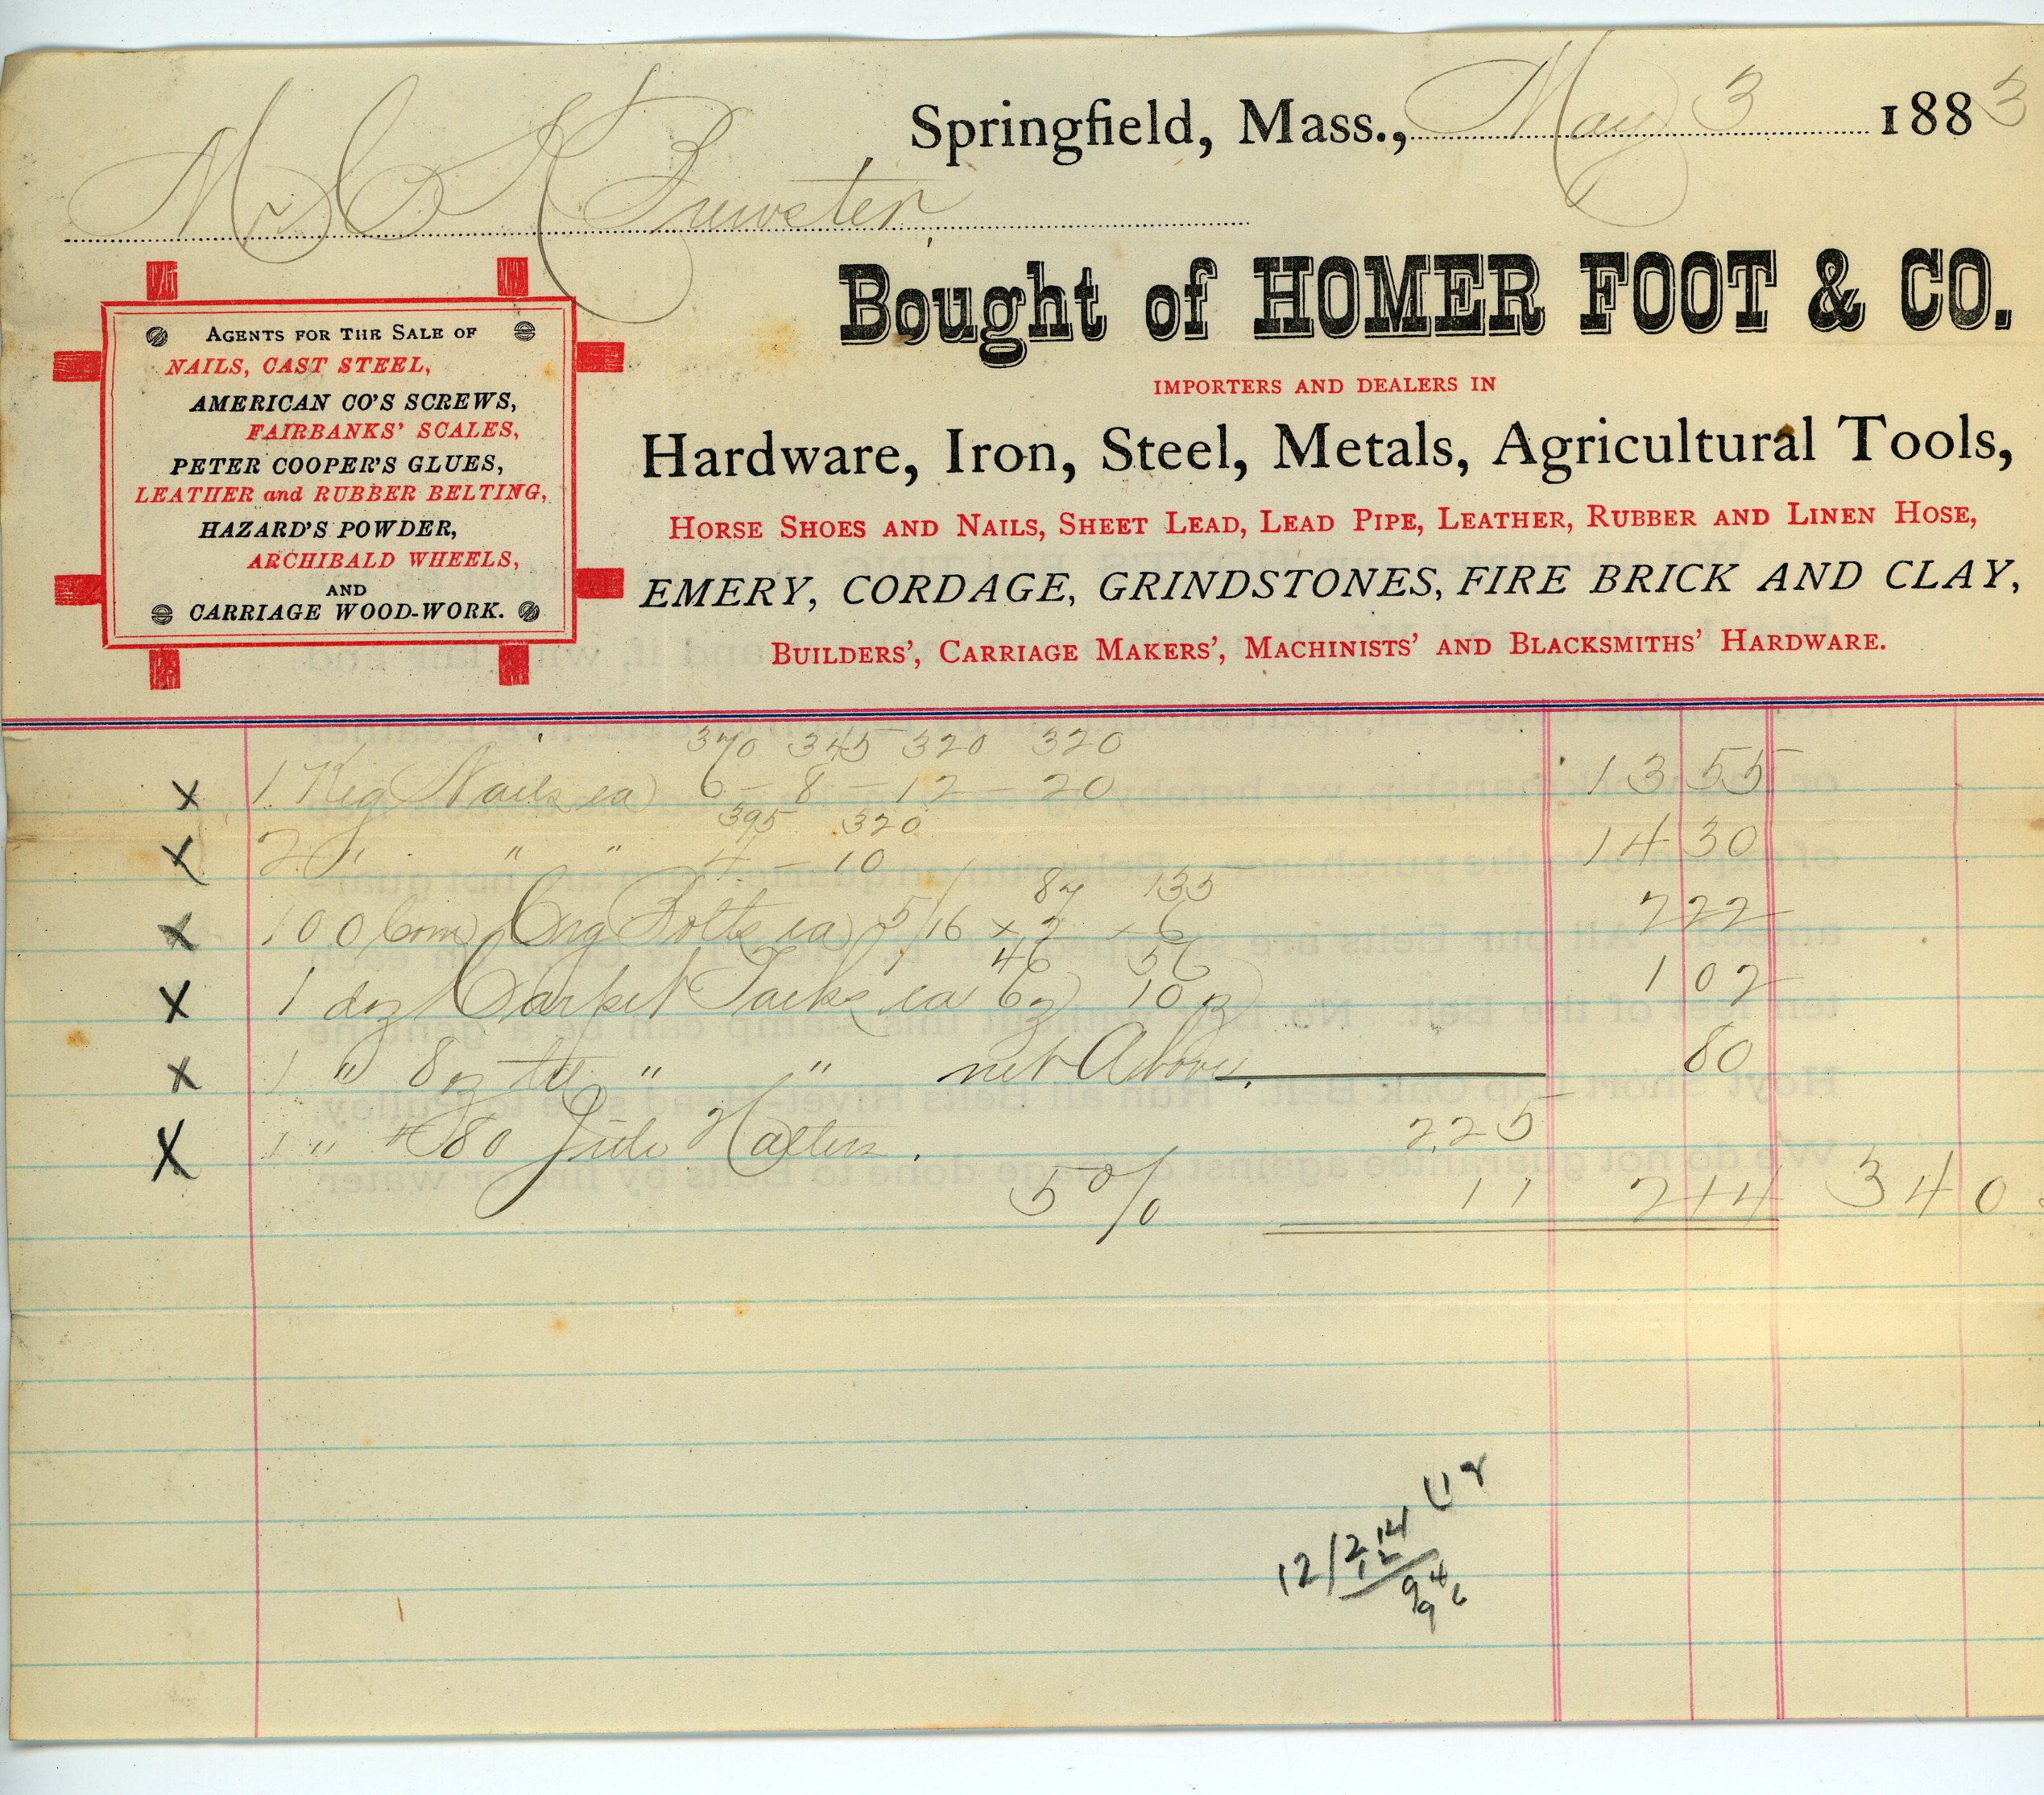 Springfield, Mass., May 3 1883
Mr C K Brewster
Bought of HOMER FOOT & CO.
IMPORTERS AND DEALERS IN
Hardware, Iron, Steel, Metals, Agricultural Tools,
HORSE SHOES AND NAILS, SHEET LEAD, LEAD PIPE, LEATHER, RUBBER AND LINEN HOSE,
EMERY, CORDAGE, GRINDSTONES, FIRE BRICK AND CLAY,
BUILDERS', CARRIAGE MAKERS', MACHINISTS' AND BLACKSMITHS' HARDWARE.
AGENTS FOR THE SALE OF
NAILS, CAST STEEL,
AMERICAN CO'S SCREWS,
FAIRBANKS' SCALES,
PETER COOPER'S GLUES,
LEATHER and RUBBER BELTING,
HAZARD'S POWDER,
ARCHIBALD WHEELS,
AND
CARRIAGE WOOD-WORK.
370 345 320 320
x 1 Keg Nails ea 6 - 8 - 12 - 20 13 55
395 320
x 2 " " " 4 - 10 14 30
87 135
x 100 Com Crg Bolts ea 5/16 x 2 x 6 2 22
46 56
x 1 doz Carpet Tacks ea 6 oz 10 oz 1 02
x 1 " 8 oz " " net Above. 80
x 1 " # 80 Halters. 2.25
5 % 11 2 14 34 0
12/2 14
12
94
96